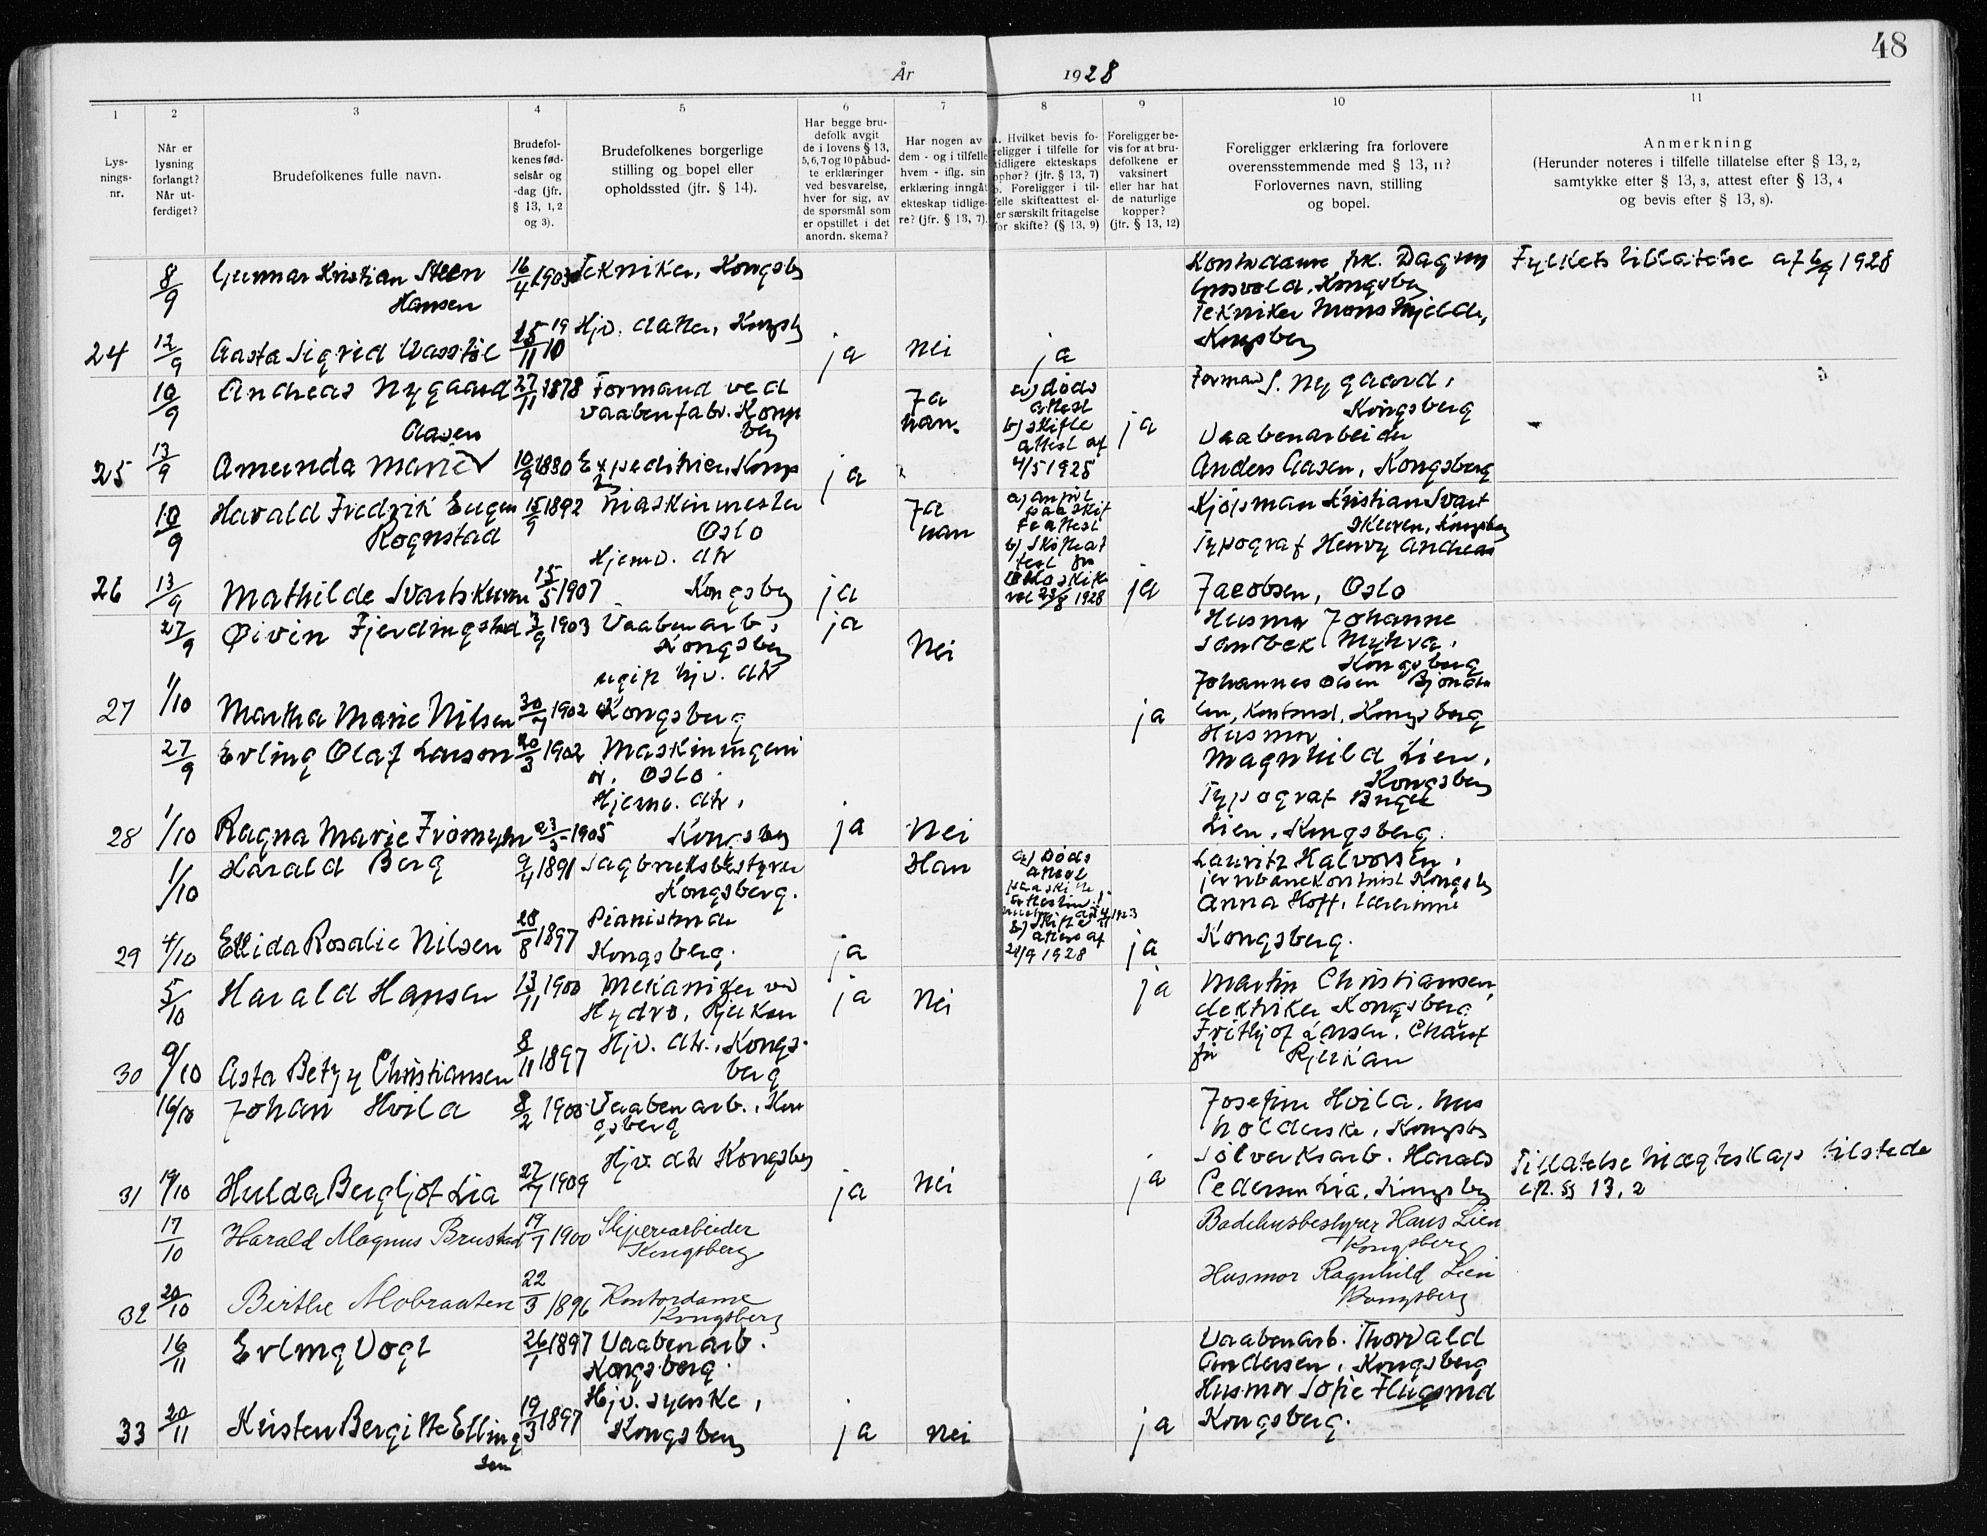 48
År 1928
1 2 3 4 5 6 7 8 9 10 11
Lys-
nings-
nr.
Når er
lysning
forlangt?
Når ut-
ferdiget?
Brudefolkenes fulle navn.
Brudefol-
kenes fød-
selsår og
-dag (jfr.
§ 13, 1, 2
og 3).
Brudefolkenes borgerlige
stilling og bopel eller
opholdssted (jfr. § 14).
Har begge bru-
defolk avgit
de i lovens § 13,
5, 6, 7 og 10 påbud-
te erklæringer
ved besvarelse,
hver for sig, av
de spørsmål som
er opstillet i det
anordn. skema?
Har nogen av
dem - og i tilfelle
hvem - iflg. sin
erklæring inngåt
ekteskap tidlige-
re? (jfr. § 13, 7).
a. Hvilket bevis fo-
religger i tilfelle for
tidligere ekteskaps
ophør? (jfr. § 13, 7)
b. Foreligger i til-
felle skifteattest el-
ler særskilt fritagelse
for skifte? (§ 13, 9)
Foreligger be-
vis for at bru-
defolkene er
vaksinert
eller har hat
de naturlige
kopper?
(jfr. § 13, 12)
Foreligger erklæring fra forlovere
overensstemmende med § 13, 11?
Forlovernes navn, stilling
og bopel.
Anmerkning
(Herunder noteres i tilfelle tillatelse efter § 13, 2,
samtykke efter § 13, 3, attest efter § 13, 4
og bevis efter § 13, 8).
8/9 Gunnar Kristian Steen
Hansen
16/4 1903 Tekniker, Kongsbg
Kontordame frk. Dagny
Kongsberg
Tekniker Mons Mjelde,
Kongsberg
Fylkets tillatelse af 6/9 1928
24 12/9 Aasta Sigrid 15/11 1910 Hjv. datter, Kongsbg ja nei ja
10/9 Andreas Nygaard
Aasen
27/11 1878 Formand ved
Vaabenfabr. Kongs
berg
Ja
han.
a) Døds
attest
b) skifte
attest af
4/5 1925
ja
Formand S. Nygaard,
Kongsberg
Vaabenarbeider
Anders Aasen, Kongsberg
25 13/9 Amunda Marie 10/9 1880 Expeditrice, Kongs
bg
ja
10/9 Harald Fredrik Eugen
Rognstad
15/9 1892 Maskinmester
Oslo
Ja
han
b) Skifteat
test fra
Oslo skifte
ret 23/8 1928
Kjøpsman Kristian Svart
skuren, Kongsberg
Typograf Henry Andreas
Jacobsen, Oslo
26 13/9 Mathilde Svartskuren 15/5 1907 Hjemv. dtr
Kongsberg
ja ja
27/9 Øivin Fjerdingstad 3/9 1903 Vaabenarb.,
Kongsberg
ja
Nei
Husmor Johanne
Sandbek Myhra,
Kongsberg
Johannes Olsen Bjønda
len, Kontorist, Kongsberg
27 1/10 Martha Marie Nilsen 30/7 1902 ugift hjv. dtr
Kongsberg
ja
27/9 Erling Olaf Larson 20/3 1902 Maskiningeni
ør, Oslo.
Husmor
Magnhild Lien,
Kongsberg
Typograf Birger
Lien, Kongsberg.
28 1/10 Ragna Marie Fromyhr 23/5 1905 Hjemv. dtr,
Kongsberg
ja Nei
1/10 Harald Berg 9/4 1891 Sagbruksbestyrer
Kongsberg.
Han
a) Døds
attest
b) Skifte
attest af
21/9 1928
Lauritz Halvorsen,
jernbanekontorist Kongsbg
Anna Hoff, Lærerinne
Kongsberg.
29 4/10 Ellida Rosalie Nilsen 28/8 1897 Pianistinde
Kongsberg.
ja ja
5/10 Harald Hansen 13/11 1900 Mekaniker ved
Hydro, Rjukan
ja Nei ja
Martin Christiansen,
elektriker Kongsberg
Frithjof Larsen, Chauf
før Rjukan
30 9/10 Asta Betzy Christiansen 8/11 1897 Hjv. dtr., Kongs-
berg
16/10 Johan Hvila 8/2 1900 Vaabenarb., Kon
gsberg
Josefine Hvila, hus
holderske, Kongsbg
Sølverksarb. Harald
Pedersen Lia, Kongsbg
31 19/10 Hulda Bergljot Lia 27/7 1909 Hjv. dtr Kongsberg
ja Nei ja
Tillatelse til ægteskap tilstede
eft. § 13, 2
17/10 Harald Magnus Brustad 19/7 1900 Sliperiarbeider
Kongsberg
Badehusbestyrer Hans Lien
Kongsberg
Husmor Ragnhild Lien
Kongsberg
32 20/10 Birthe Mobraaten 22/3 1896 Kontordame
Kongsberg
16/11 Erling Vogt 26/1 1897 Vaabenarb.
Kongsberg.
Vaabenarb. Thorvald
Andersen, Kongsberg
Husmor Sofie Flugsrud
Kongsberg.
33 20/11 Kirsten Bergitte Elling
sen
19/3 1897 Hjv. syerske,
Kongsberg
ja nei ja